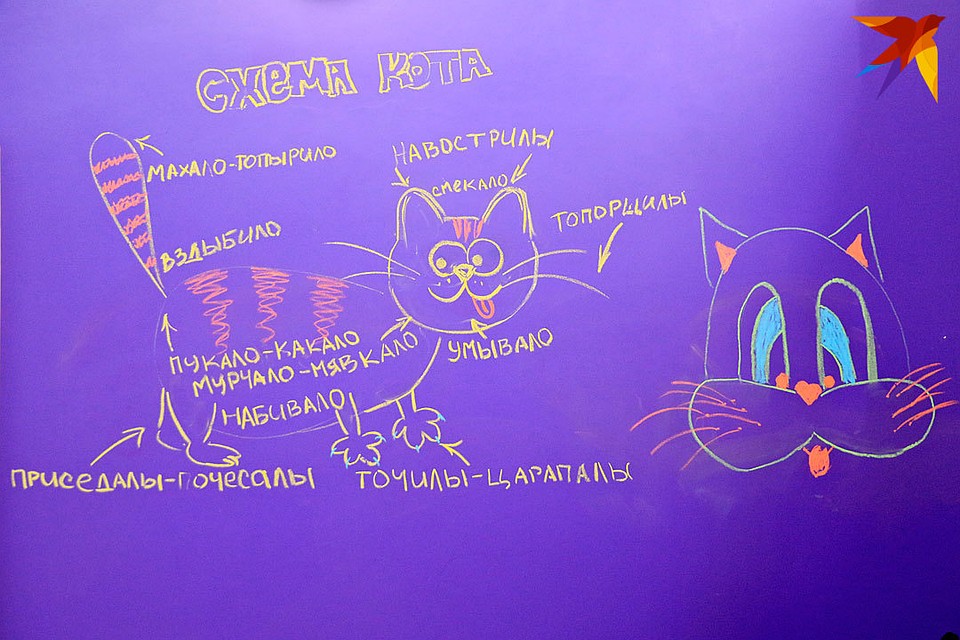 СХЕМА КОТА
НАВОСТРИЛЫ
МАХАЛО-ТОПЫРИЛО
СМЕКАЛО
ТОПОРЩИЛЫ
ВЗДЫБИЛО
ПУКАЛО-КАКАЛО
МУРЧАЛО-МЯВКАЛО
УМЫВАЛО
НАБИВАЛО
ПРИСЕДАЛЫ-ПОЧЕСАЛЫ
ТОЧИЛЫ-ЦАРАПАЛЫ